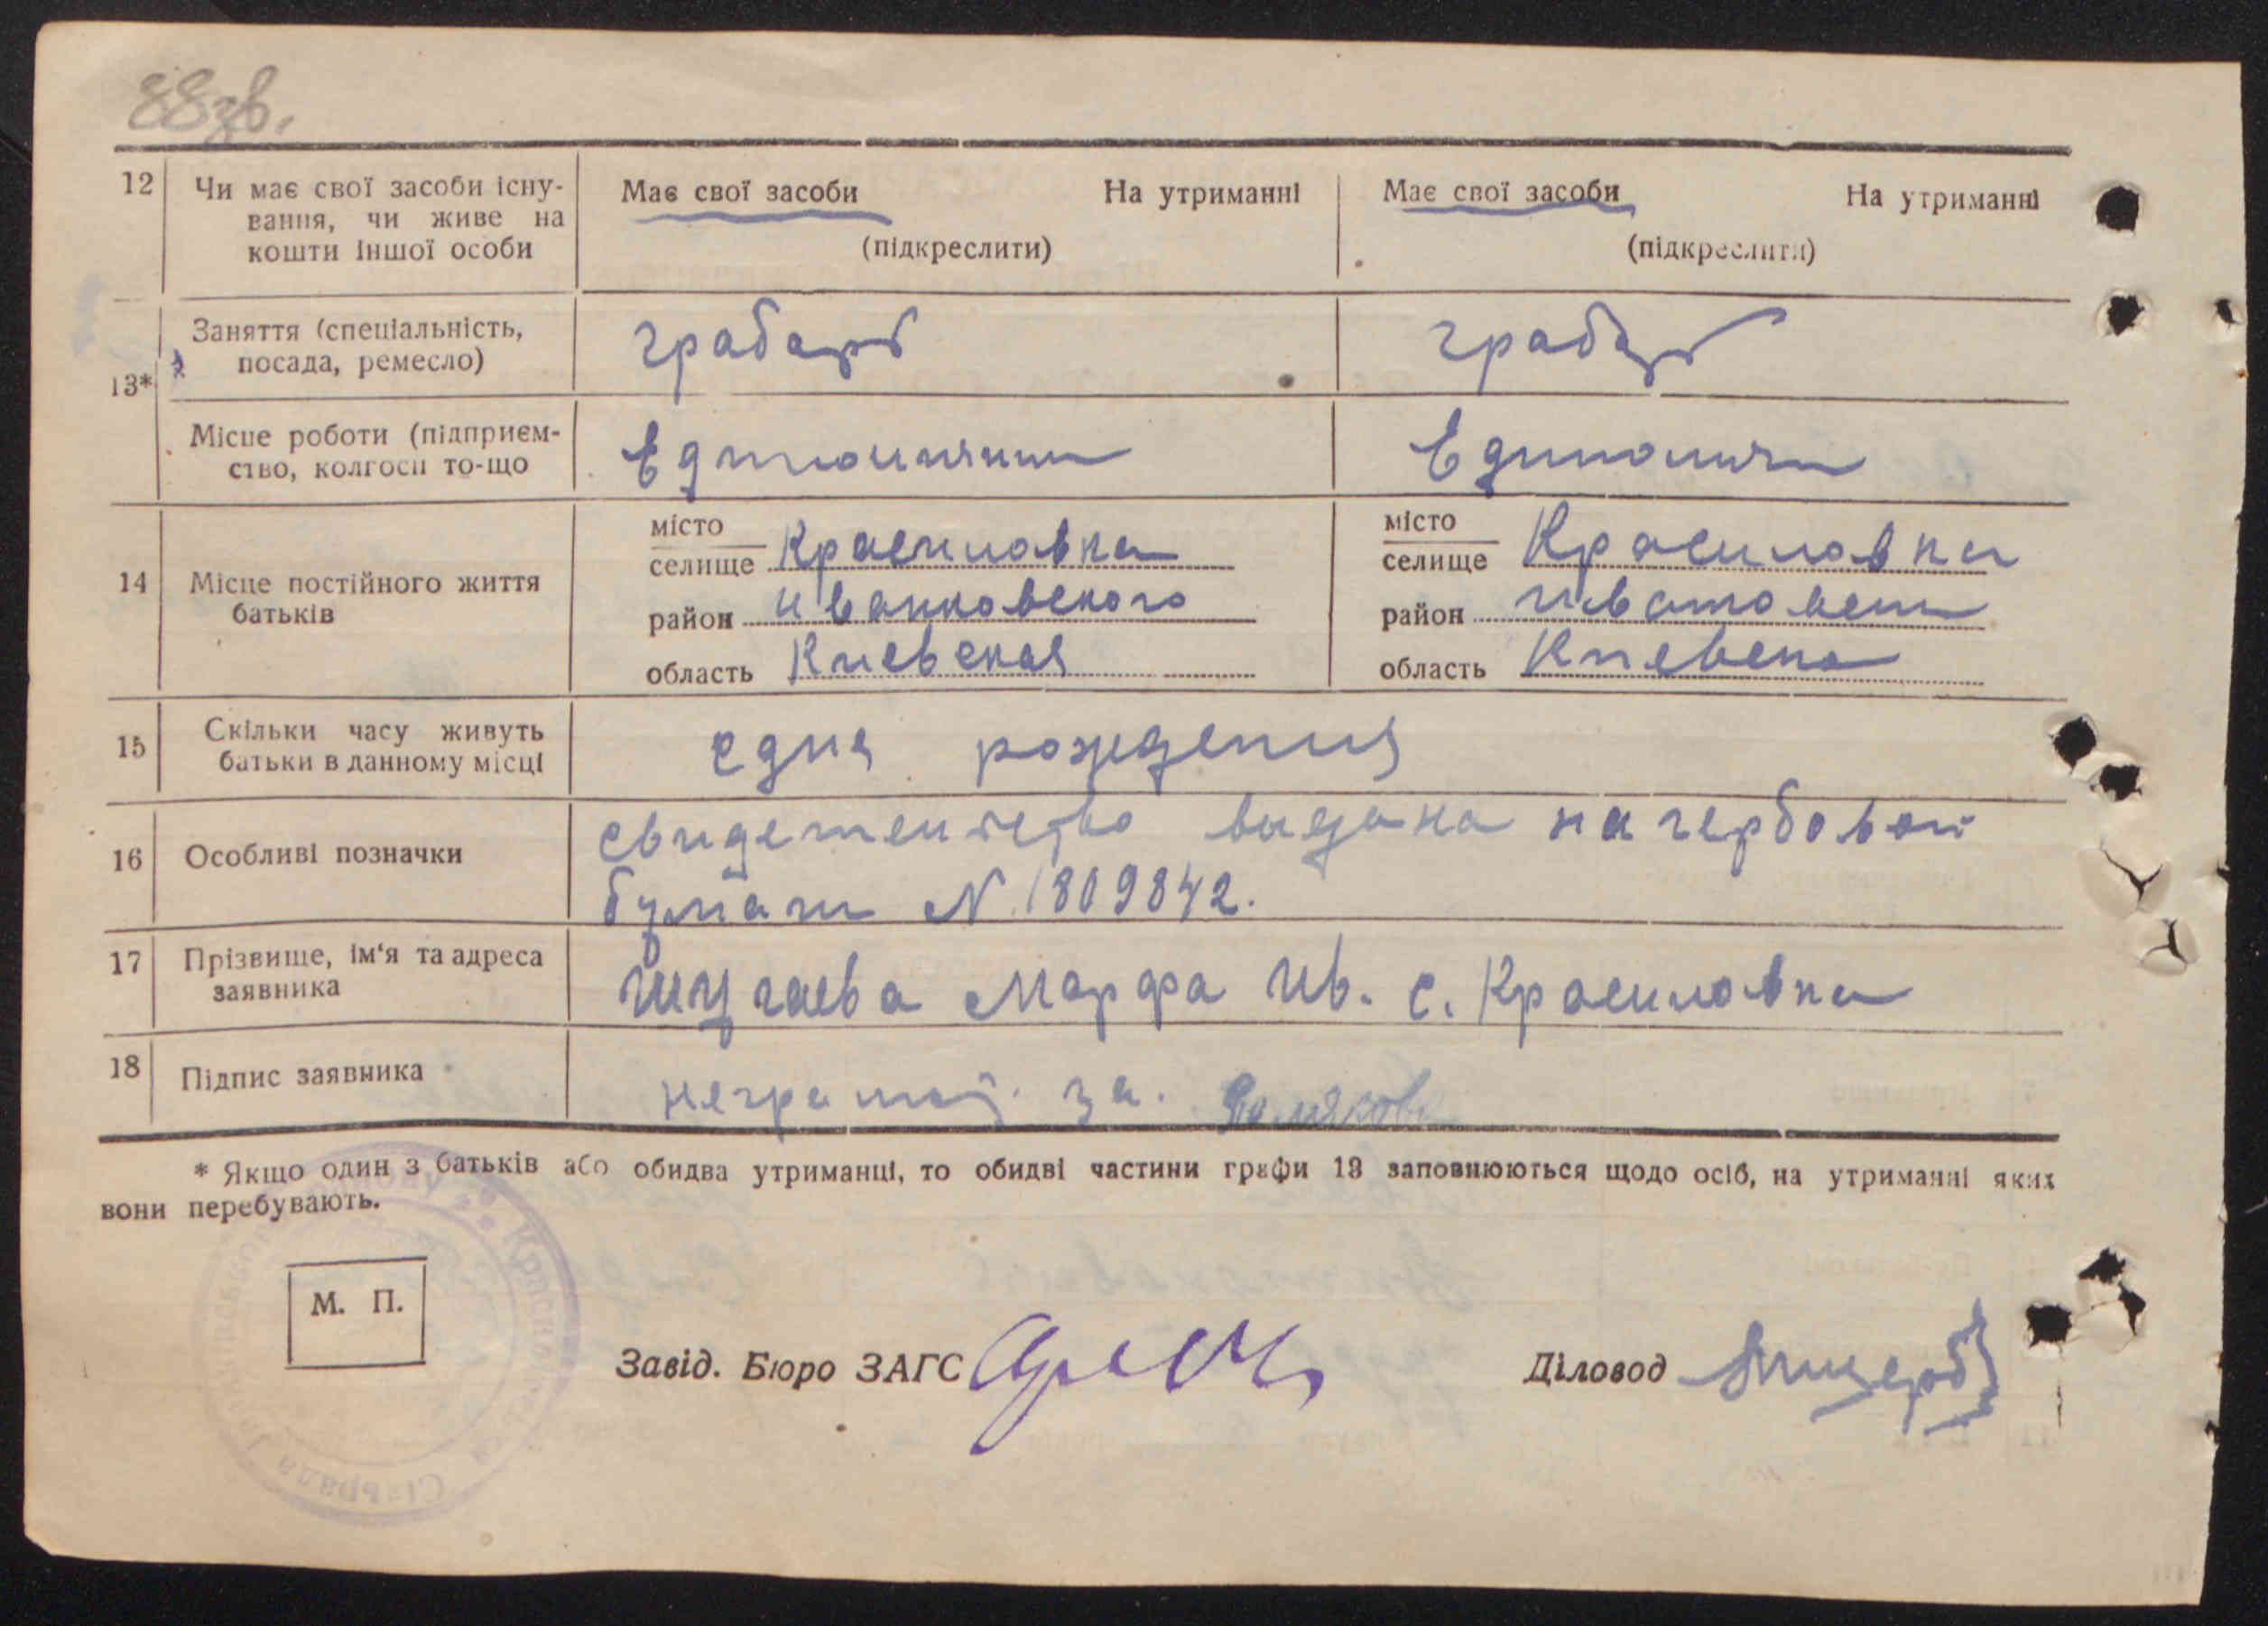 88зв.
12 Чи має свої засоби існу-
вання, чи живе на
кошти іншої особи
Має свої засоби На утриманні
(підкреслити)
Має свої засоби На утриманні
(підкреслити)
13*
Заняття (спеціальність,
посада, ремесло)
грабарь
грабарь
Місце роботи (підприєм-
ство, колгосп то-що
14 Місце постійного життя
батьків
місто
селище Красиловка
район Иванковского
область Киевская
місто
селище Красиловка
район
область Киевска
15 Скільки часу живуть
батьки в данному місці
сдня рождения
16 Особливі позначки
свидетельство выдана на гербовой
бумаги N 1809842.
17 Прізвище, ім'я та адреса
заявника
Марфа Ив. с. Красиловка
18 Підпис заявника
за.
* Якщо один з батьків або обидва утриманці, то обидві частини графи 13 заповнюються щодо осіб, на утриманні яких
вони перебувають.
М. П.
Завід. Бюро ЗАГС
Діловод